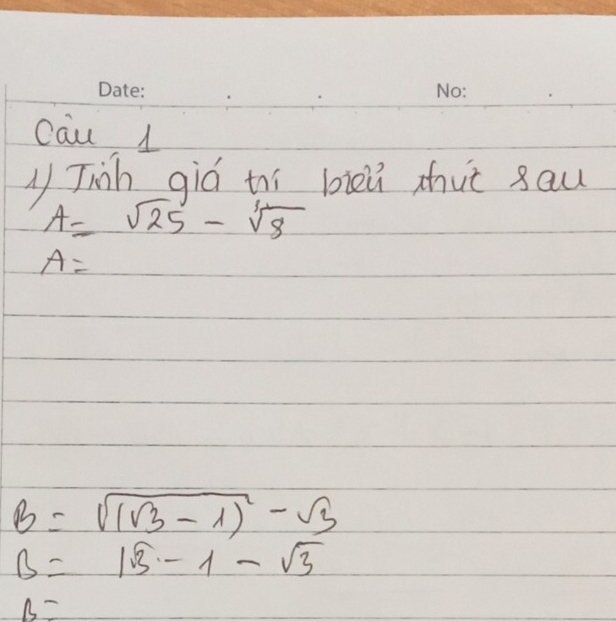 Date: No:
Câu 1
1) Tính giá trí biểu thức sau
A = √25 - ∛8
A =
B = √(√3 - 1)² - √3
B = |√3 - 1 - √3
B =